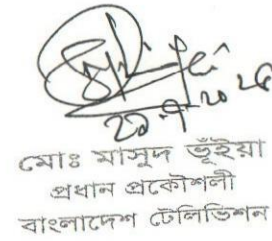 মোঃ মাসুদ ভূঁইয়া
প্রধান প্রকৌশলী
বাংলাদেশ টেলিভিশন